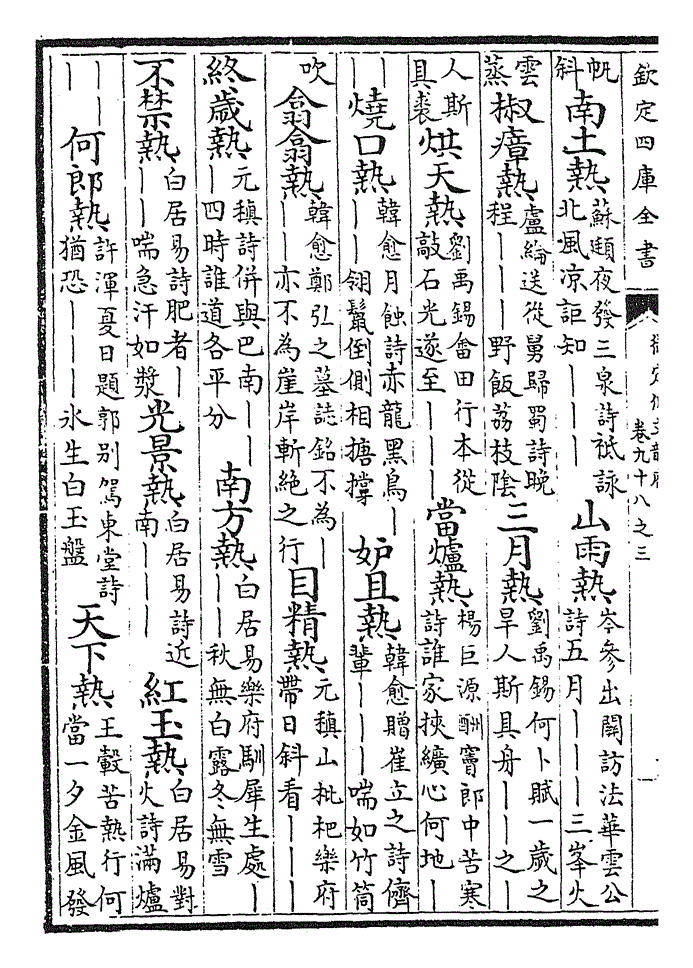 欽定四庫全書
卷九十八之三
帆斜南土熱蘇頲夜發三泉詩祗詠北風凉詎知｜｜｜山雨熱岑參出關訪法華雲公詩五月｜｜｜三峯火
雲蒸椒瘴熱盧綸送從舅歸蜀詩晚程｜｜｜野飯荔枝陰三月熱劉禹錫何卜賦一歲之旱人斯具舟｜｜之｜
人斯具裘烘天熱劉禹錫畬田行本從敲石光遂至｜｜｜當爐熱楊巨源酬竇郎中苦寒詩誰家挾纊心何地｜
｜｜燒口熱韓愈月蝕詩赤龍黑鳥｜｜｜翎鬣倒側相搪撐妒且熱韓愈贈崔立之詩儕輩｜｜｜喘如竹筒
吹翕翕熱韓愈鄭弘之墓誌銘不為｜｜｜亦不為崖岸斬絶之行目精熱元稹山枇杷樂府帶日斜看｜｜｜
終歲熱元稹詩併與巴南｜｜｜四時誰道各平分南方熱白居易樂府馴犀生處｜｜｜秋無白露冬無雪
不禁熱白居易詩肥者｜｜｜喘急汗如漿光景熱白居易詩近南｜｜｜紅玉熱白居易對火詩滿爐
｜｜｜何郎熱許渾夏日題郭别駕東堂詩猶恐｜｜｜氷生白玉盤天下熱王轂苦熱行何當一夕金風發